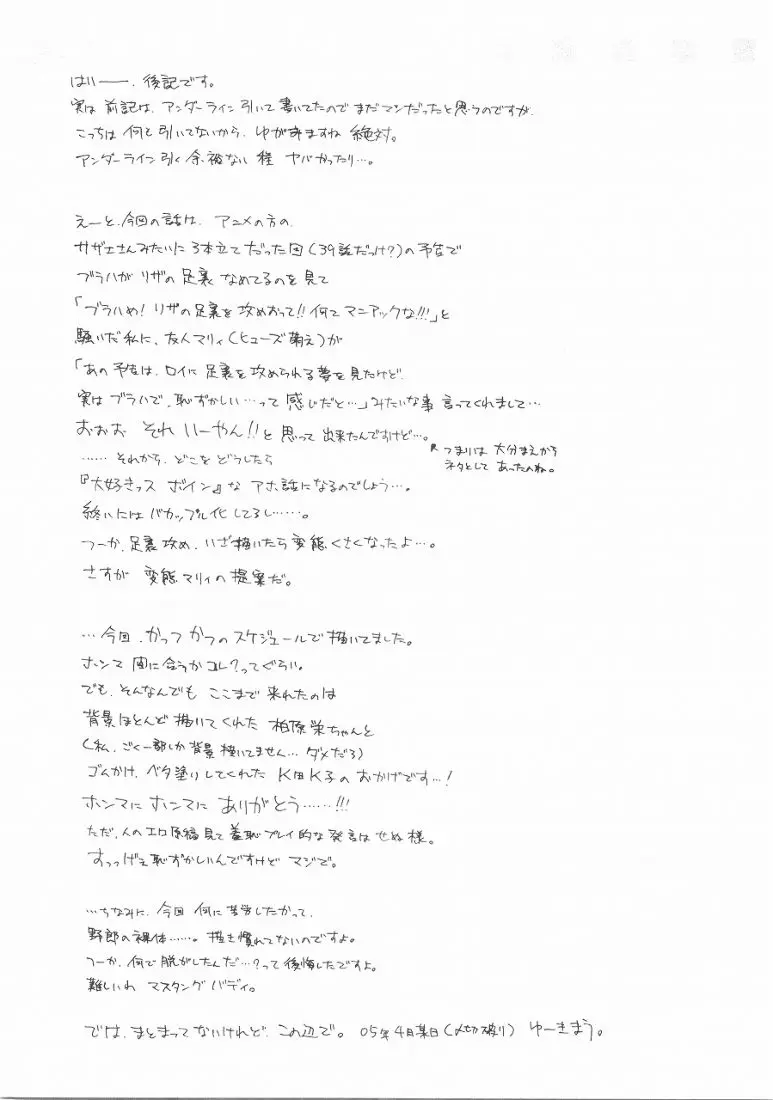 はいーー. 後記です。
実は 前記は、アンダーライン引いて書いてたのでまだマシだったと思うのですが.
こっちは 何も引いてないから、ゆがみますね 絶対。
アンダーライン引く余裕ない 程 ヤバかったり…。
えーと、今回の話は、アニメの方の、
サザエさんみたいに 3本立てだった回(39話だっけ?)の予告で
ブラハがリザの足裏 なめてるのを見て
「ブラハめ! リザの足裏を攻めおって!! 何てマニアックな!!!」と
騒いだ私に、友人マリィ(ヒューズ萌え)が
「あの予告は、ロイに足裏を攻められる夢を見たけど、
実はブラハで、恥ずかしい…って 感じだと…」みたいな事 言ってくれまして…
おぉお それ いーやん!! と 思って 出来たんですけど…。
つまりは 大分まえから
ネタとして あったのね。
…… それから、どこを どうしたら
『大好きっス ボイン』な アホ話になるのでしょう…。
終いにはバカップル化してるし……。
つーか、足裏攻め、いざ描いたら変態くさくなったよ…。
さすが 変態マリィの提案だ。
…今回、かっつかつのスケジュールで描いてました。
ホンマ 間に合うかコレ?ってぐらい。
でも、そんなんでも ここまで 来れたのは
背景ほとんど描いてくれた 柏原栄ちゃんと
(私、ごく一部しか背景描いてません… ダメだろ)
ゴムかけ、ベタ塗りしてくれた K田K子の おかげです…!
ホンマに ホンマに ありがとう……!!!
ただ、人のエロ原稿見て羞恥プレイ的な発言はせぬ様。
すっっげぇ恥ずかしいんですけど マジで。
…ちなみに、今回 何に苦労したかって、
野郎の裸体……。描き慣れてないのですよ。
つーか、何で脱がしたんだ…?って後悔したですよ。
難しいわ マスタング バディ。
では、まとまってないけれど、この辺で。 05年4月某日(〆切破り) ゆーきまう。